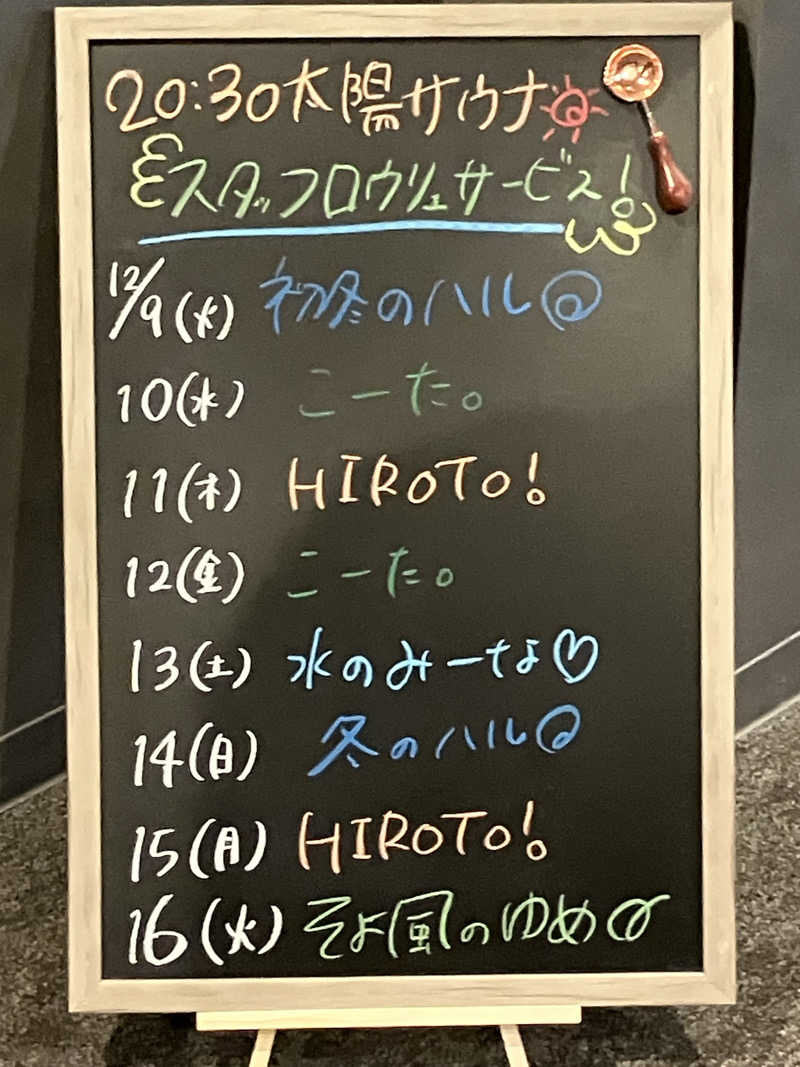 20:30太陽サウナ
スタッフロウリュサービス!
12/9(火) 初冬のハル@
10(水) こーた。
11(木) HIROTO!
12(金) こーた。
13(土) 水のみーなよ♡
14(日) 冬のハル@
15(月) HIROTO!
16(火) そよ風のゆめ@